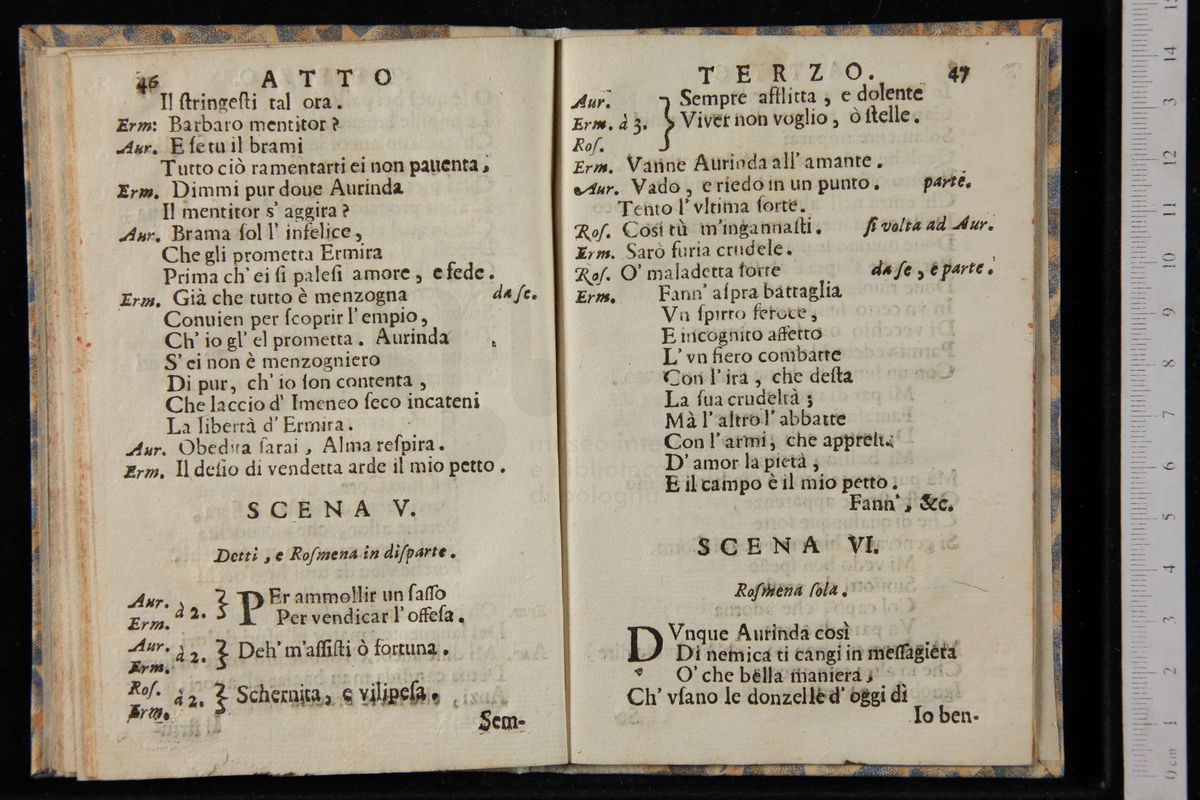 46 ATTO
Il ſtringeſti tal ora.
Erm: Barbaro mentitor?
Aur. E ſe tu il brami
Tutto ciò ramentarti ei non pauenta.
Erm. Dimmi pur doue Aurinda
Il mentitor s' aggira?
Aur. Brama ſol l' infelice,
Che gli prometta Ermira
Prima ch' ei ſi paleſi amore, e fede.
Erm. Già che tutto è menzogna da ſe.
Conuien per ſcoprir l' empio,
Ch' io gl' el prometta. Aurinda
S' ei non è menzogniero
Di pur, ch' io ſon contenta,
Che laccio d' Imeneo ſeco incateni
La libertà d' Ermira.
Aur. Obedita ſarai, Alma reſpira.
Erm. Il deſio di vendetta arde il mio petto.
SCENA V.
Detti, e Roſmena in diſparte.
Aur. Erm. à 2. PEr ammollir un ſaſſo
Per vendicar l' offeſa.
Aur. Erm. à 2. Deh' m'aſſiſti ò fortuna.
Roſ. Erm. à 2. Schernita, e vilipeſa.
Sem-
TERZO. 47
Aur. Erm. Roſ. à 3. Sempre afflitta, e dolente
Viver non voglio, ò ſtelle.
Erm. Vanne Aurinda all' amante.
Aur. Vado, e riedo in un punto. parte.
Tento l' vltima ſorte.
Roſ. Così tù m'ingannaſti. ſi volta ad Aur.
Erm. Sarò furia crudele.
Roſ. O' maladetta ſorte da ſe, e parte.
Erm. Fann' aſpra battaglia
Vn ſpirto feroce,
E incognito affetto
L' vn fiero combatte
Con l' ira, che deſta
La ſua crudeltà;
Mà l' altro l' abbatte
Con l' armi, che appreſt.
D' amor la pietà,
E il campo è il mio petto.
Fann', &c.
SCENA VI.
Roſmena ſola.
DVnque Aurinda così
Di nemica ti cangi in meſſagiera
O' che bella maniera,
Ch' vſano le donzelle d' oggi dì
Io ben-